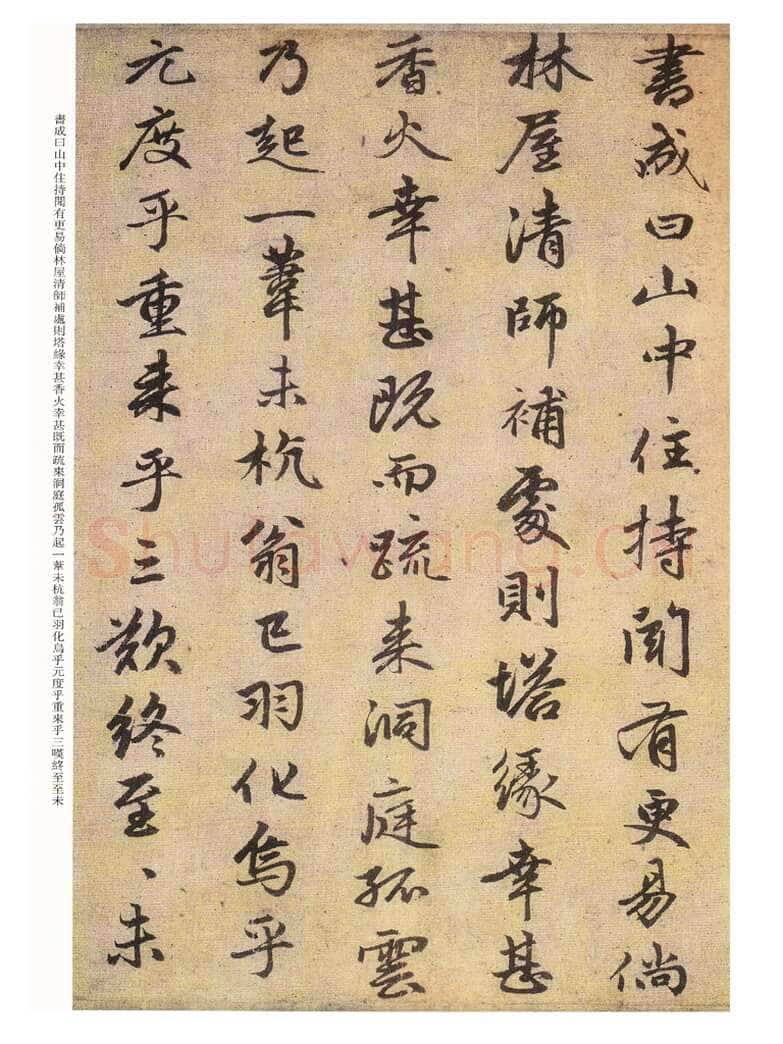 書成曰山中住持聞有更易倘
林屋清師補處則塔緣幸甚
香火幸甚既而疏来洞庭孤雲
乃起一葦未杭翁已羽化烏乎
元度乎重来乎三歎終至〻未
書成曰山中住持聞有更易倘林屋清師補處則塔緣幸甚香火幸甚既而疏來洞庭孤雲乃起一葦未杭翁已羽化烏乎元度乎重來乎三嘆終至至未
Shufawang.cn